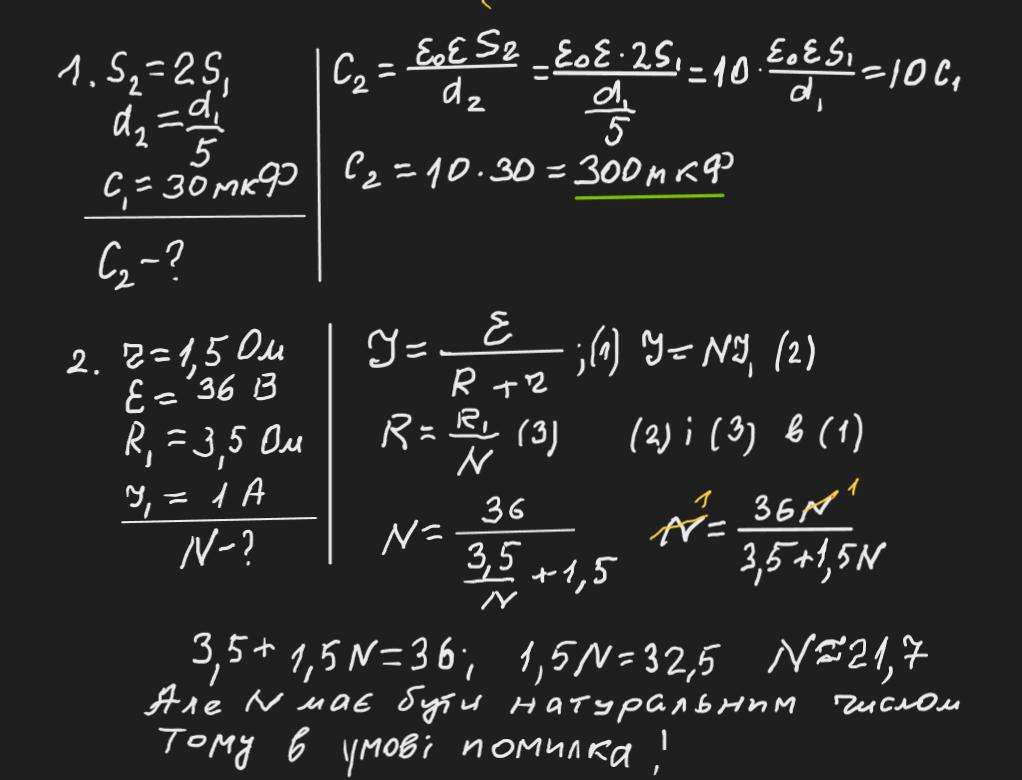 1. S₂ = 2S₁
d₂ = d₁/5
C₁ = 30 мкФ
C₂ - ?
C₂ = ε₀εS₂/d₂ = ε₀ε·2S₁/(d₁/5) = 10 · ε₀εS₁/d₁ = 10C₁
C₂ = 10 · 30 = 300 мкФ
2. r = 1,5 Ом
ε = 36 В
R₁ = 3,5 Ом
I₁ = 1 А
N - ?
I = ε/(R + r) ; (1) I = NI₁ (2)
R = R₁/N (3) (2) і (3) в (1)
N = 36/(3,5/N + 1,5) N 1 = 36N 1/(3,5 + 1,5N)
3,5 + 1,5N = 36; 1,5N = 32,5 N ≈ 21,7
Але N має бути натуральним числом
Тому в умові помилка!